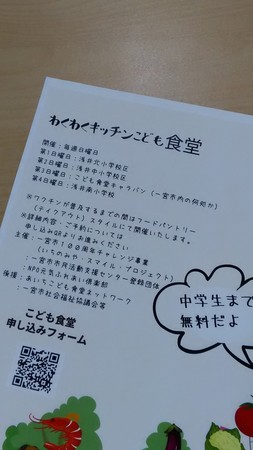 わくわくキッチンこども食堂
開催:毎週日曜日
第1日曜日:浅井北小学校区
第2日曜日:浅井中小学校区
第3日曜日:こども食堂キャラバン(一宮市内の何処か)
第4日曜日:浅井南小学校
※ワクチンが普及するまでの間はフードパントリー
(テイクアウト)スタイルにて開催いたします。
※詳細内容・ご予約については
申し込みQRよりお進みください
主催:一宮市100周年チャレンジ事業
(いちのみや・スマイル・プロジェクト)
:一宮市市民活動支援センター登録団体
:NPO元気ふれあい倶楽部
後援:あいちこども食堂ネットワーク
:一宮市社会福祉協議会等
こども食堂
申し込みフォーム
中学生まで
無料だよ